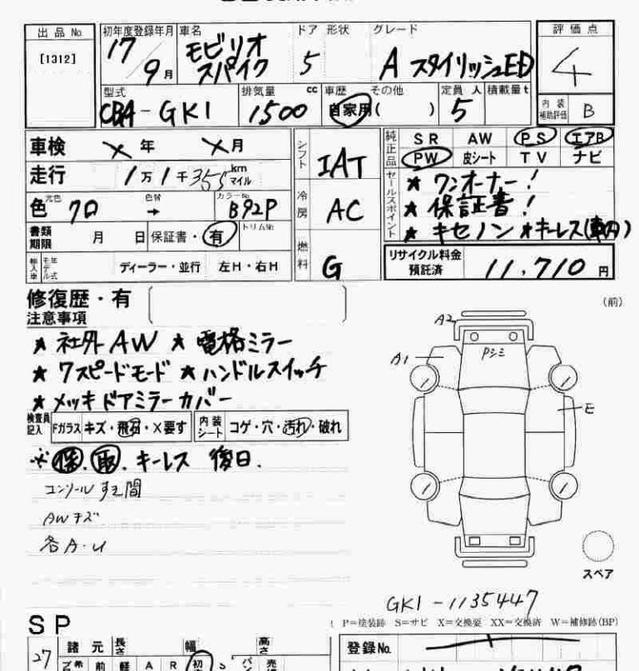 出品No. 初年度登録年月 車名 ドア 形状 グレード 評価点
[1312] 17 9月 モビリオ スパイク 5 A スタイリッシュED 4
型式 排気量 cc 車歴 その他 定員 人 積載量 t 内装補助評価 B
CBA-GK1 1500 自家用( ) 5
車検 年 月 シフト IAT 純正品 SR AW PS エアB
走行 1万1千355 km マイル PW 皮シート TV ナビ
色 元色 クロ 色替 → カラーNo. B92P 冷房 AC セールスポイント ★ワンオーナー!
★保証書!
書類期限 月 日 保証書・有 トリムNo. ★キセノン ★キーレス(車内)
輸入車 モデル年式 ディーラー・並行 左H・右H 燃料 G リサイクル料金預託済 11,710円
修復歴・有 (前)
注意事項
★社外AW ★電格ミラー
★7スピードモード ★ハンドルスイッチ
★メッキドアミラーカバー
検査員記入 Fガラス キズ・飛石・X要す 内装シート コゲ・穴・汚れ・破れ
※保.取.キーレス 後日.
コンソールすき間
AWキズ
各A・U
A2
Pシミ
A1
E
スペア
GK1-1135447
SP P=塗装跡 S=サビ X=交換要 XX=交換済 W=補修跡(BP)
27 諸元 長さ 幅 高さ 登録No.